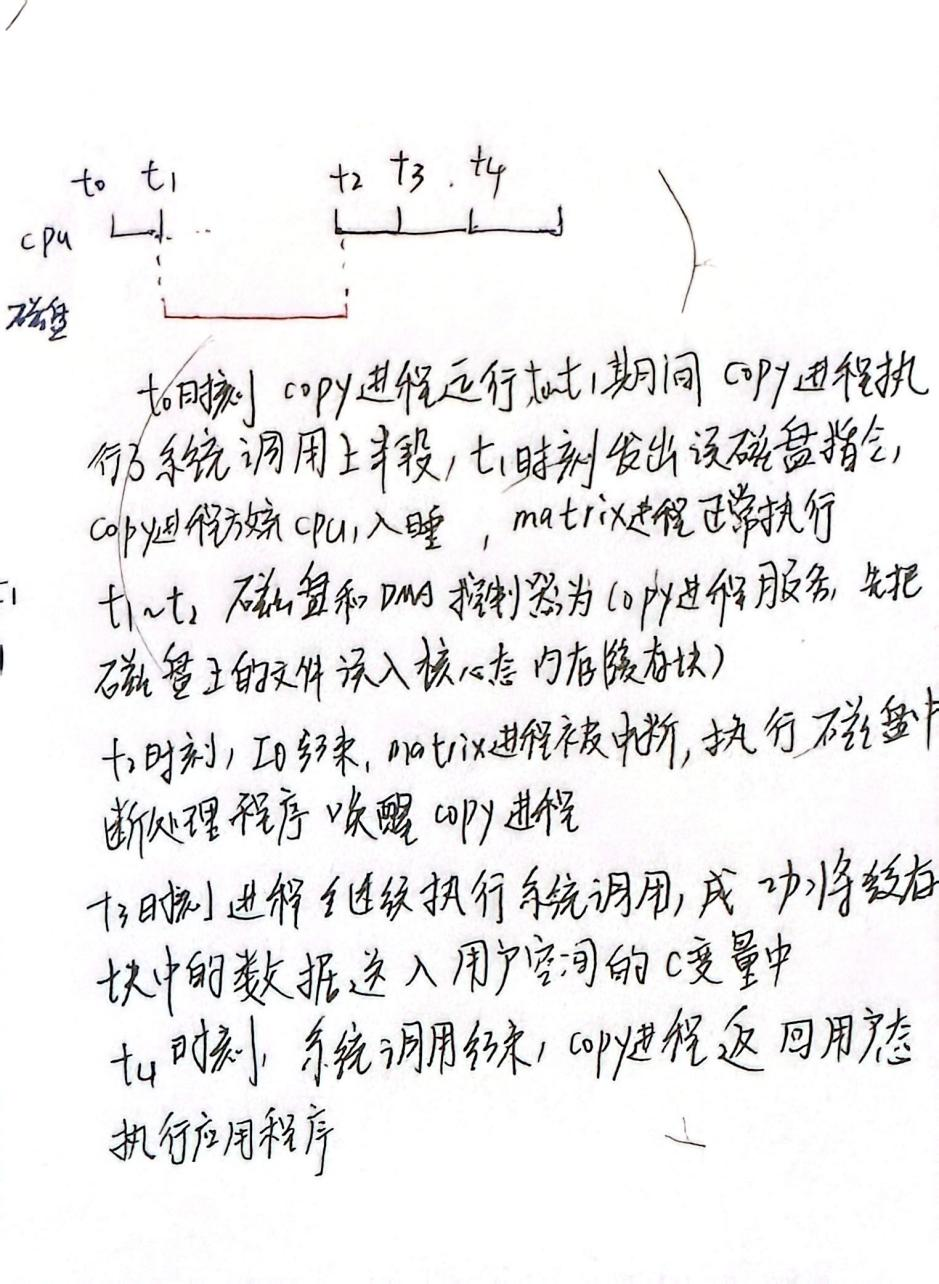 t0 t1 t2 t3 . t4
cpu
磁盘
t0时刻 copy进程运行,t0~t1期间 copy进程执
行了系统调用上半段, t1时刻发出读磁盘指令,
copy进程放弃cpu,入睡 , matrix进程正常执行
t1~t2 磁盘和DMA控制器为copy进程服务, 先把
磁盘上的文件读入核心态内存(缓存块)
t2时刻, IO结束, matrix进程被中断, 执行磁盘中
断处理程序 唤醒 copy进程
t3时刻 进程继续执行系统调用, 成功将缓存
块中的数据送入用户空间的c变量中
t4时刻, 系统调用结束, copy进程返回用户态
执行应用程序